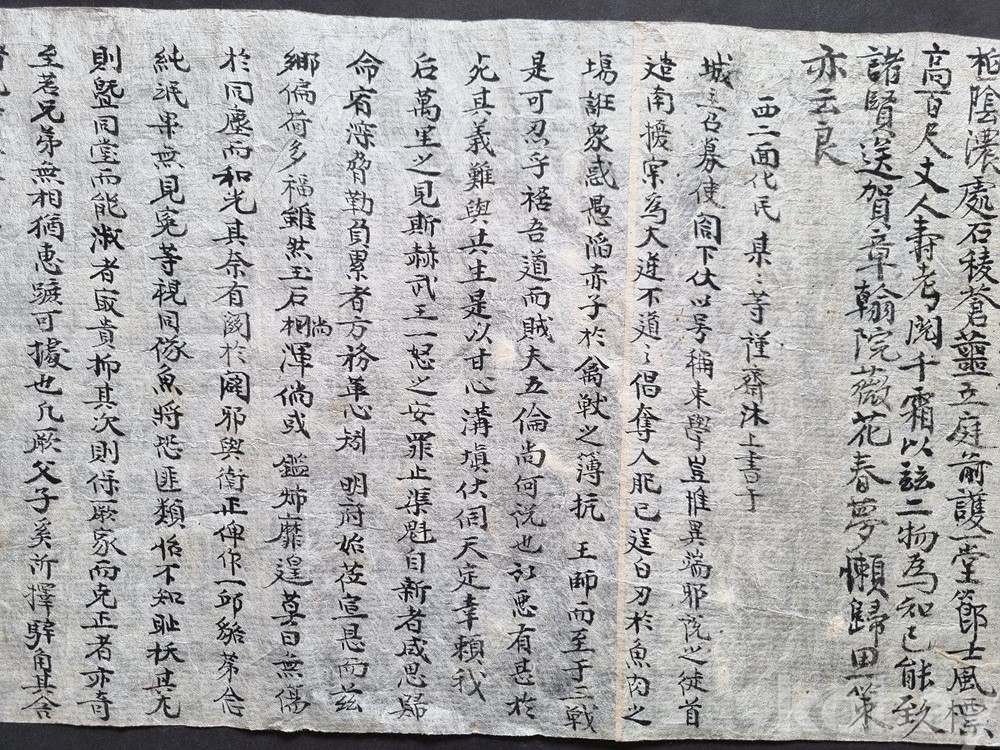 栢陰濃處石稜蒼蘁立庭前護一堂節士風標
高百尺丈人壽考閱千霜以玆二物爲知己能致
諸賢送賀章翰院薇花春夢懶歸田一策
亦云良
西二面代民 某〻等 謹齋沐上書于
城主召募使閤下伏以号稱東學豈惟異端邪說之徒首
造南擾宗爲大逆不道〻倡奪人肥己逞白刃於魚肉之
場誑衆惑愚陷赤子於禽獸之簿抗 王師而至于三戰
是可忍乎禍吾道而賊夫五倫尚何說也討惡有甚於
死其義難與共生是以甘心溝壑伏伺天定幸賴我
后萬里之見斯赫武王一怒之安罪止渠魁自新者咸思歸
命宥深脅勒負累者方務革心矧 明府始莅宣恩而玆
鄉偏荷多福雖然玉石相尚渾倘或 鑑姉靡遑莫曰無傷
於同塵而和光其奈有關於闢邪與衛正俾作一邱貉苐念
純泯畢無見冤等視同隊魚將恐匪類恬不知耻抶其尤
則曁同堂而能淑者最貴抑其次則保厥家而克正者亦奇
至若兄弟無相猶惠蹠可據也凡厥父子奚所擇騂角其舍